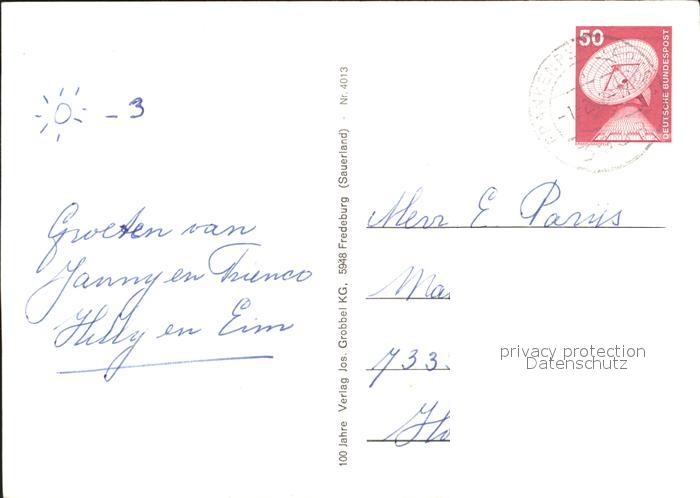 - 3
Groeten van
Janny en Trienco
Hilly en Eim
100 Jahre Verlag Jos. Grobbel KG, 5948 Fredeburg (Sauerland) · Nr. 4013
50
DEUTSCHE BUNDESPOST
Mevr E Parijs
Ma
733
Ho
privacy protection
Datenschutz